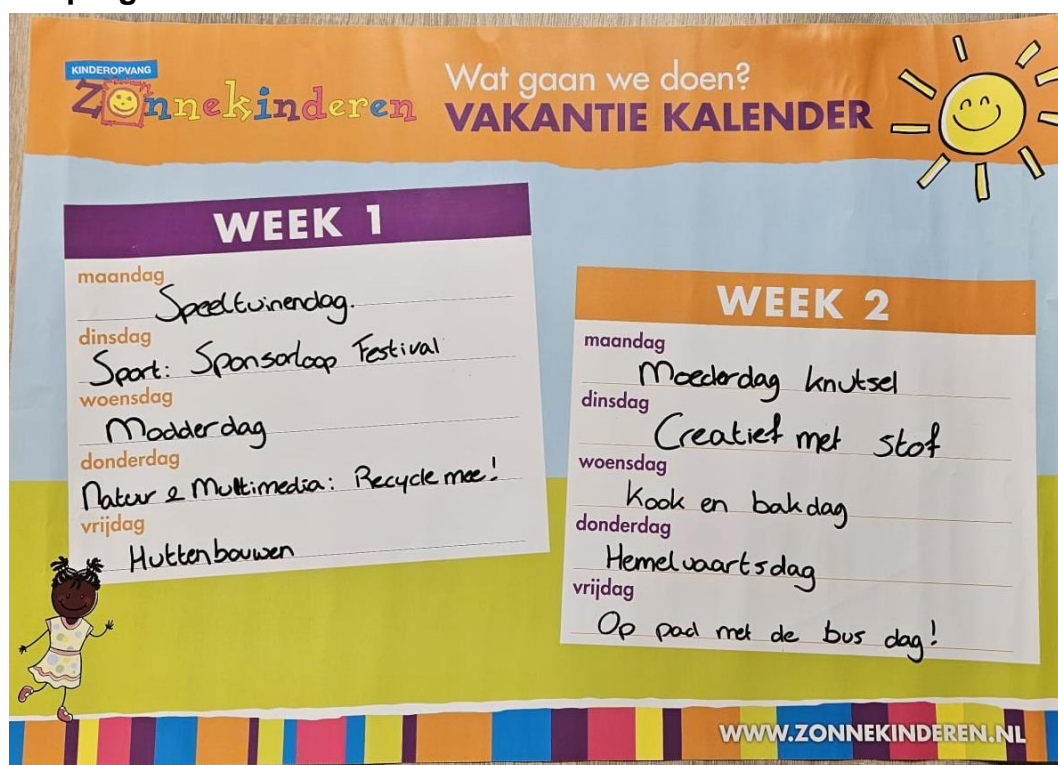 KINDEROPVANG
Zonnekinderen
Wat gaan we doen?
VAKANTIE KALENDER
WEEK 1
maandag
Speeltuinendag.
dinsdag
Sport: Sponsorloop Festival
woensdag
Modderdag
donderdag
Natuur & Multimedia: Recycle mee!
vrijdag
Huttenbouwen
WEEK 2
maandag
Moederdag knutsel
dinsdag
Creatief met stof
woensdag
Kook en bakdag
donderdag
Hemelvaartsdag
vrijdag
Op pad met de bus dag!
WWW.ZONNEKINDEREN.NL